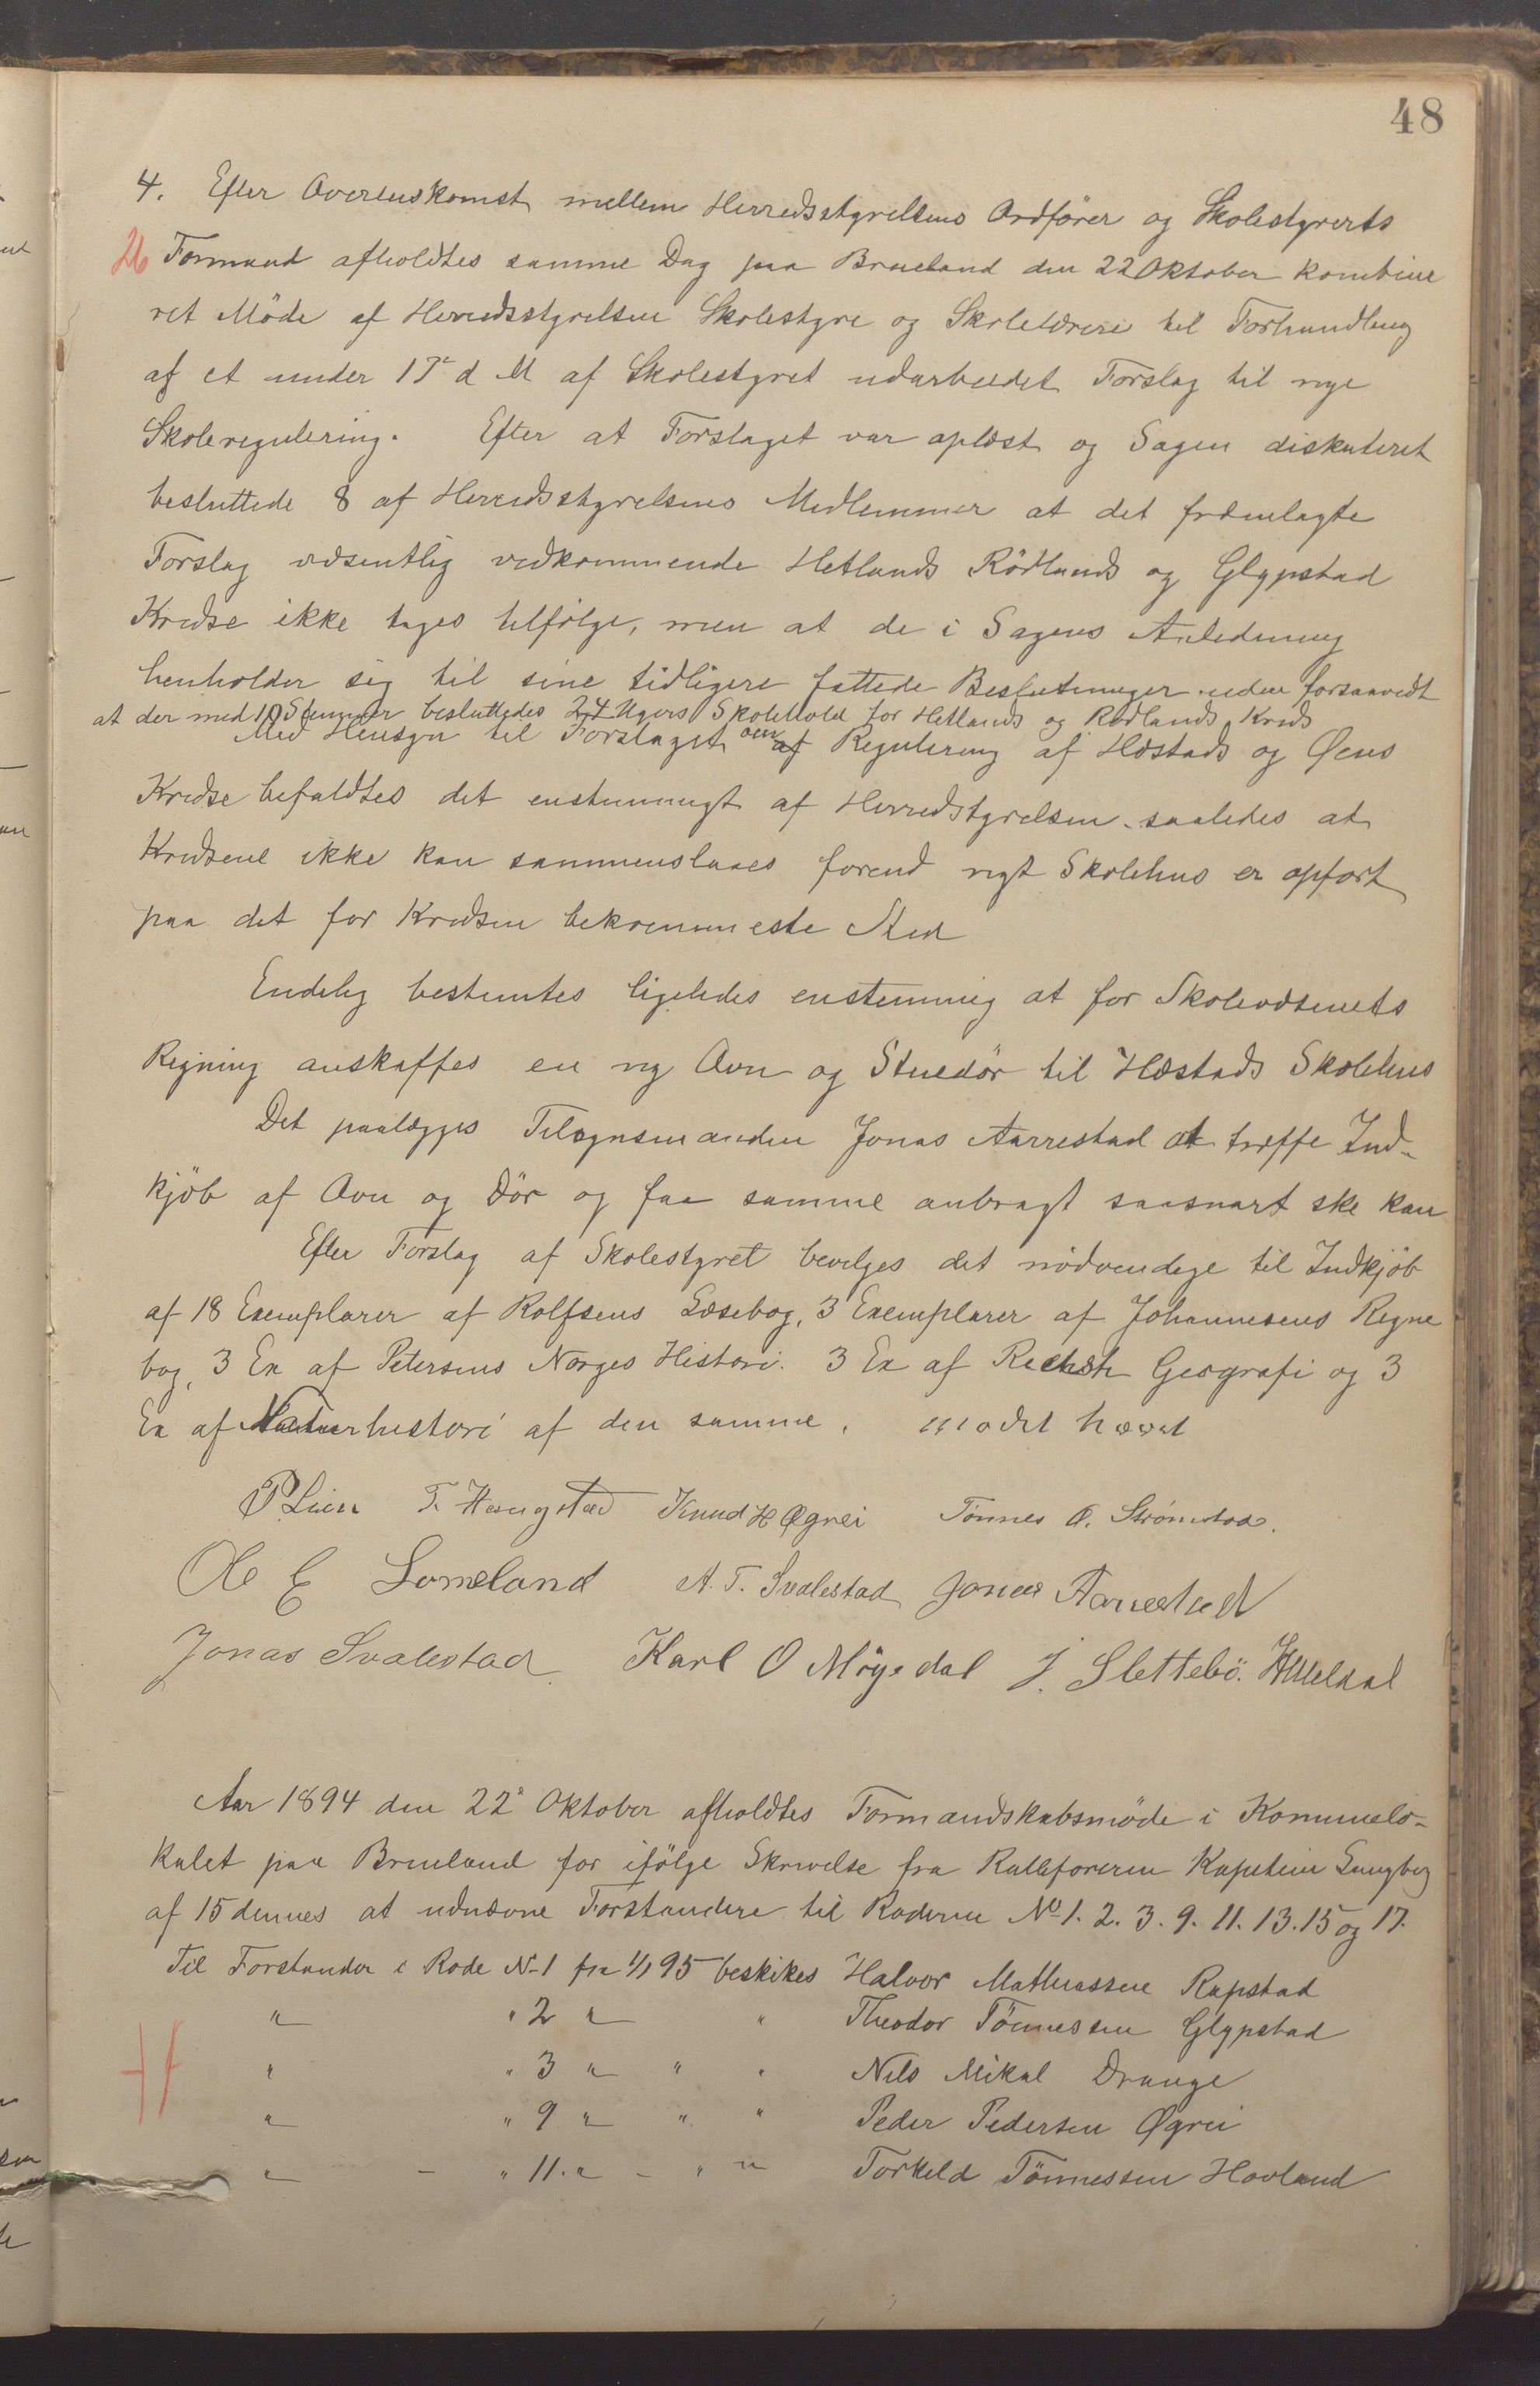 48
4. Efter Overenskomst mellem Herredsstyrelsens Ordförer og Skolestyrets
26 Formand afholdtes samme Dag paa Brueland den 22 Oktober kombine
ret Möde af Herredsstyrelsen Skolestyre og Skolelærere til Forhandling
af et under 17de d M af Skolestyret udarbeidet Forslag til nye
Skoleregulering. Efter at Forslaget var oplæst og Sagen diskuteret
besluttede 8 af Herredsstyrelsens Medlemmer at det fremlagte
Forslag væsentlig vedkommende Hetlands Rödlands og Glypstad
Kredse ikke tages tilfölge, men at de i Sagens Anledning
henholder sig til sine tidligere fattede Beslutninger uden forsaavidt
at der med 10 Stemmer besluttedes 24 Ugers Skolehold for Hetlands og Rødlands Kreds
Med Hensyn til Forslaget om af Regulering af Hæstads og Øens
Kredse befaldtes det enstemmigt af Herredstyrelsen saaledes at
Kredsene ikke kan sammenslaaes forend nyt Skolehus er opfort
paa det for Kredsen bekvemmeste Sted
Endelig bestemtes ligeledes enstemmig at for Skolevæsenets
Regning anskaffes en ny Ovn og Stuedör til Hæstads Skolehus
Det paalægges Tilsynsmanden Jonas Aarrestad at træffe Ind-
kjöb af Ovn og Dör og faa samme anbragt saasnart ske kan
Efter Forslag af Skolestyret bevilges det nödvendige til Indkjöb
af 18 Exemplarer af Rolfsens Læsebog, 3 Exemplarer af Johannesens Regne
bog, 3 Ex af Petersens Norges Histori. 3 Ex af Geografi og 3
Ex af Naturhistori af den samme. Mødet hævet
P Lien T. Haugstad Knud H Øgrei Tønnes O. Strømstad.
Ole E Lomeland A. T. Svalestad Jonas Aarrestad
Jonas Svalestad Karl O Möyedal J. Slettebö.
Aar 1894 den 22de Oktober afholdtes Formandskabsmöde i Kommunelo-
kalet paa Brueland for ifölge Skrivelse fra Rulleføreren Kaptein Langberg
af 15 dennes at udnævne Forstandere til Roderne No 1. 2. 3. 9. 11. 13. 15 og 17.
Til Forstander i Rode N-1 fra 1/1 95 beskikes Halvor Mathiassen Rapstad
" " 2 " " Theodor Tönnessen Glypstad
" " 3 " " " Nils Mikal Drange
" " 9 " " " Peder Pedersen Øgrei
" - " 11. " - " " Torkeld Tönnessen Hovland